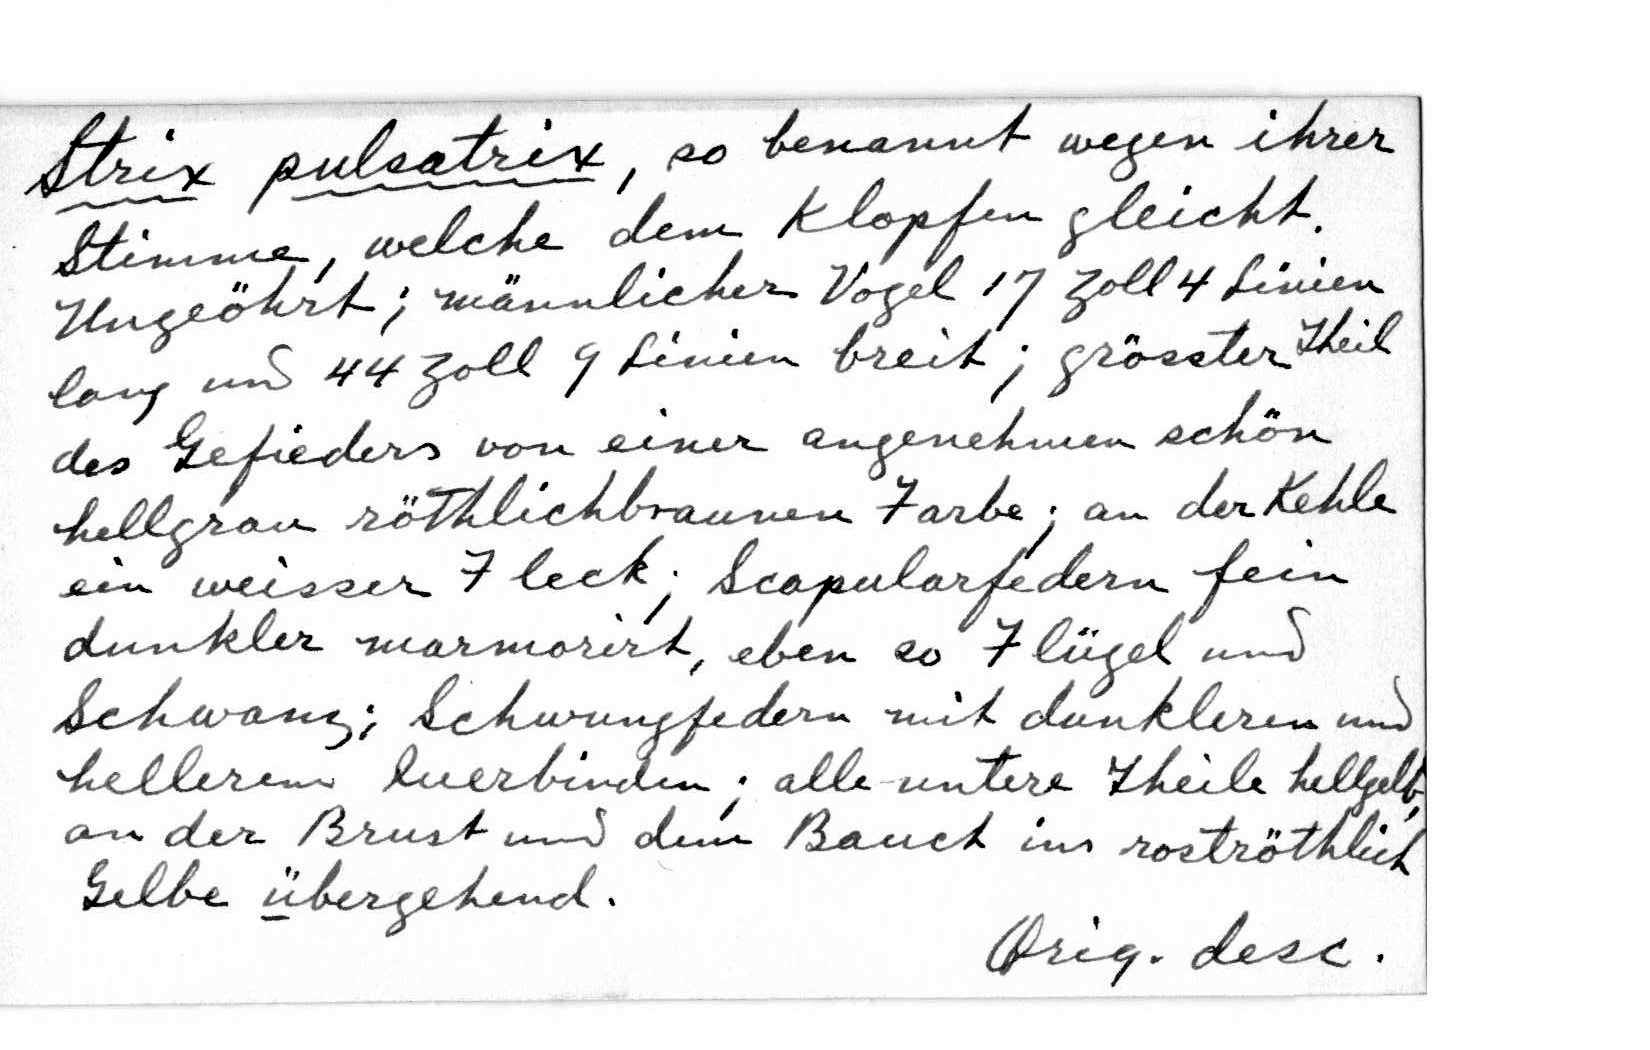 Strix pulsatrix, so benannt wegen ihrer
Stimme, welche dem Klopfen gleicht.
Ungeöhrt; männlicher Vogel 17 Zoll 4 Linien
lang und 44 Zoll 9 Linien breit; grösster Theil
des Gefieders von einer angenehmen schön
hellgrau röthlichbraunen Farbe; an der Kehle
ein weisser Fleck; Scapularfedern fein
dunkler marmorirt, eben so Flügel und
Schwanz; Schwungfedern mit dunkleren und
helleren Querbinden; alle untere Theile hellgelb,
an der Brust und dem Bauch ins roströthlich
Gelbe übergehend.
Orig. desc.